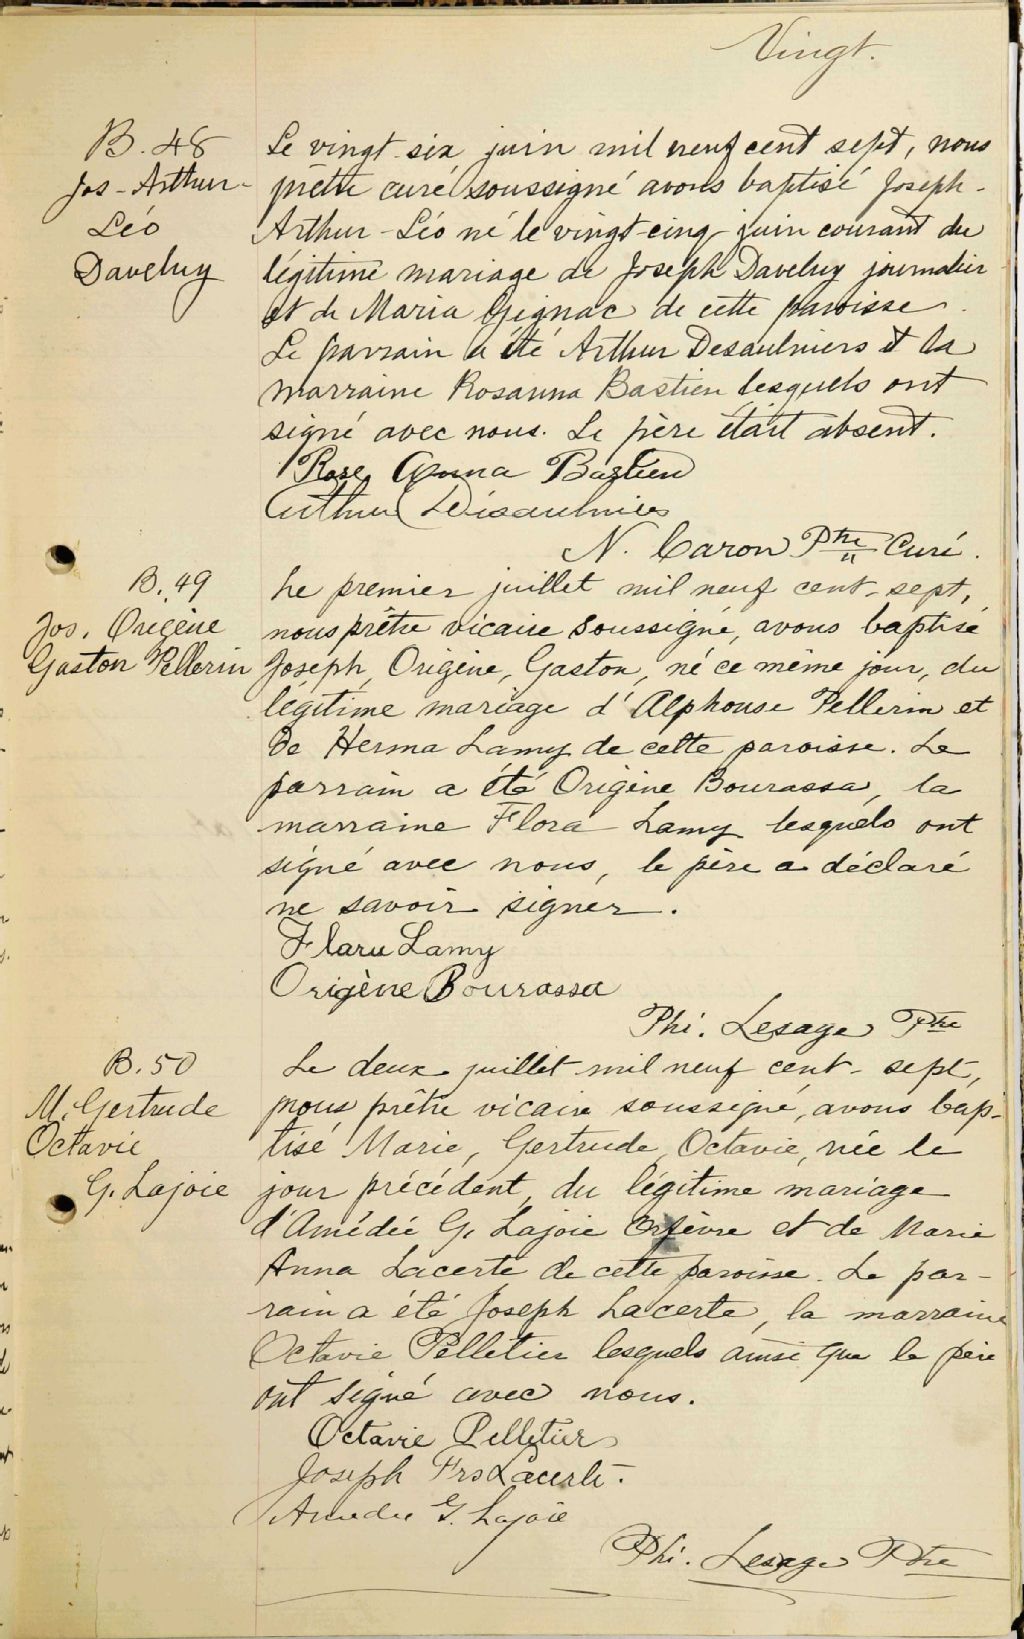 Vingt.
B. 48
Jos-Arthur-
Léo
Daveluy
Le vingt-six juin mil neuf cent sept, nous
prêtre curé soussigné avons baptisé Joseph-
Arthur-Léo né le vingt-cinq juin courant du
légitime mariage de Joseph Daveluy journalier
et de Maria Gignac de cette paroisse.
Le parrain a été Arthur Desaulniers et la
marraine Rosanna Bastien lesquels ont
signé avec nous. Le père était absent.
Rose Anna Bastien
Arthur Désaulniers
N. Caron Ptre Curé.
B. 49
Jos. Origène
Gaston Pellerin
Le premier juillet mil neuf cent-sept,
nous prêtre vicaire soussigné, avons baptisé
Joseph, Origène, Gaston, né ce même jour, du
légitime mariage d'Alphonse Pellerin et
de Herma Lamy de cette paroisse. Le
parrain a été Origène Bourassa, la
marraine Flora Lamy lesquels ont
signé avec nous, le père a déclaré
ne savoir signer.
Flora Lamy
Origène Bourassa
Phi. Lesage Ptre
B. 50
M. Gertrude
Octavie
G. Lajoie
Le deux juillet mil neuf cent-sept,
nous prêtre vicaire soussigné, avons bap-
tisé Marie, Gertrude, Octavie, née le
jour précédent, du légitime mariage
d'Amédée G. Lajoie orfèvre et de Marie
Anna Lacerte de cette paroisse. Le par-
rain a été Joseph Lacerte, la marraine
Octavie Pelletier lesquels ainsi que le père
ont signé avec nous.
Octavie Pelletier
Joseph Frs Lacerte.
Amédée G. Lajoie
Phi. Lesage Ptre